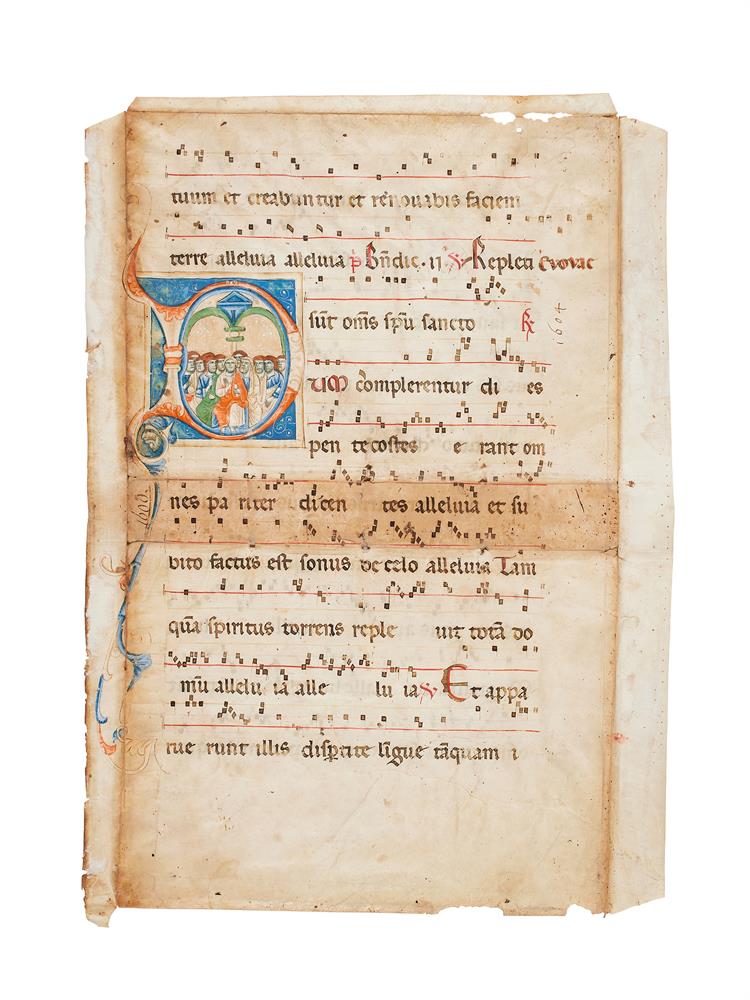 tuum et creabuntur et renouabis faciem
terre alleluia alleluia p̄ Bn̄dic. ii ℣ Repleti euouae
sūt om̄s sp̄u sancto ℟
1604
um cōplerentur di es
pen te costes e rant om
nes pa riter dicen tes alleluia et su
1600.
bito factus est sonus de celo alleluia Tam
quā spiritus torrens reple uit totā do
mū allelu ia alle lu ia ℣ Et appa
rue runt illis disꝑtite līgue tāquam i